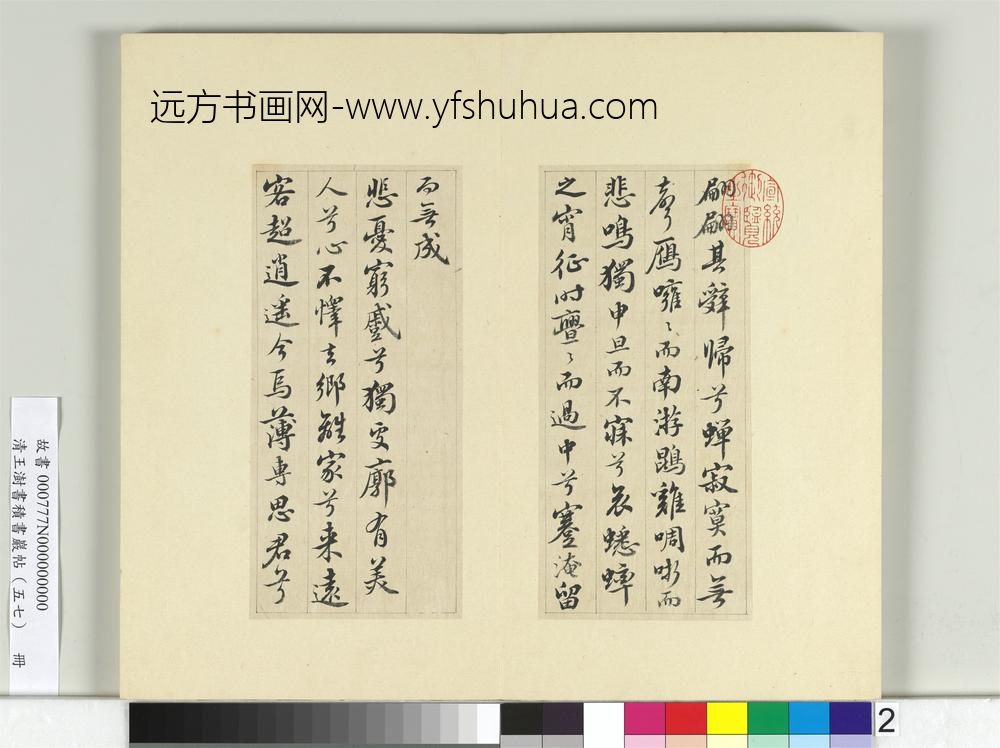 远方书画网-www.yfshuhua.com
翩翩其辭歸兮蟬寂寞而無
聲鴈噰〻而南游鵾雞啁哳而
悲鳴獨申旦而不寐兮哀蟋蟀
之宵征时亹〻而過中兮蹇淹留
而無成
悲憂窮慼兮獨處廓有美
人兮心不懌去鄉離家兮来遠
客超逍遥今焉薄專思君兮
宣統御覽之寶
故書 000777N000000000
清王澍書積書巖帖（五七） 冊
2